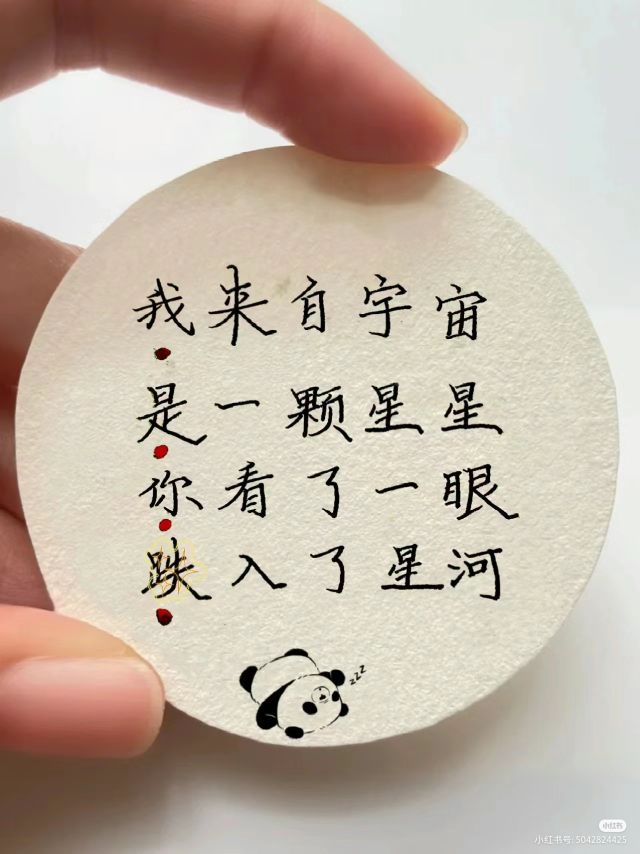 我来自宇宙
是一颗星星
你看了一眼
跌入了星河
zzz
小红书
小红书号: 5042824425